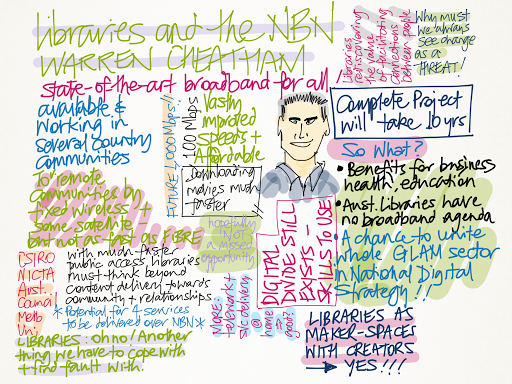 Libraries and the NBN
WARREN CHEATHAM
state-of-the-art broadband for all!
available &
working in
several country
communities
To remote
communities by
fixed wireless +
some satellite
but not as fast as FIBRE
FUTURE 1,000 Mbps!!
100 Mbps
Vastly
improved
speeds +
Affordable
Downloading
movies much
faster
hopefully
not
a missed
opportunity
Libraries
rediscovering
the value
of facilitating
connections
between people
Why must
we always
see change
as a
THREAT!
Complete Project
will take 10 yrs
So What?
• Benefits for business
health, education
• Aust. Libraries have
no broadband agenda
• A chance to unite
whole GLAM sector
in National Digital
Strategy!!
DIGITAL
DIVIDE STILL
EXISTS -
SKILLS TO USE
CSIRO
NICTA
Aust.
Council
Melb
Uni,
with much faster
public access, libraries
must think beyond
content delivery towards
community + relationships
* Potential 4 services
to be delivered over NBN *
MORE:
telework +
svc delivery
@
home
good?
LIBRARIES: oh no! Another
thing we have to cope with
+ find fault with!
LIBRARIES AS
MAKER-SPACES
WITH CREATORS
→ YES!!!